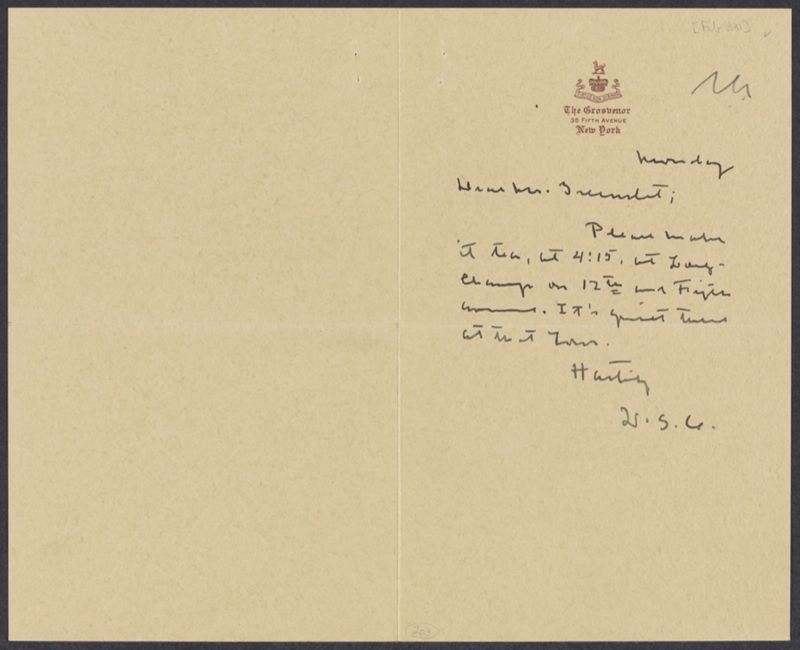 The Grosvenor
35 Fifth Avenue
New York
Monday
Dear Mr. Greenslet;
Please make
it tea, at 4:15, at Long-
champs on 12th and Fifth
avenue. It's quiet there
at that hour.
Hastily
W. S. C.
203